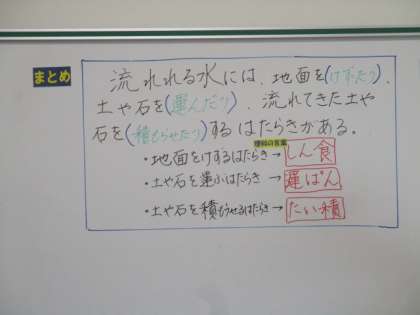 まとめ
流れれる水には、地面を(けずったり)、
土や石を(運んだり)、流れてきた土や
石を(積もらせたり)するはたらきがある。
理科の言葉
・地面をけずるはたらき → しん食
・土や石を運ぶはたらき → 運ぱん
・土や石を積もらせるはたらき → たい積